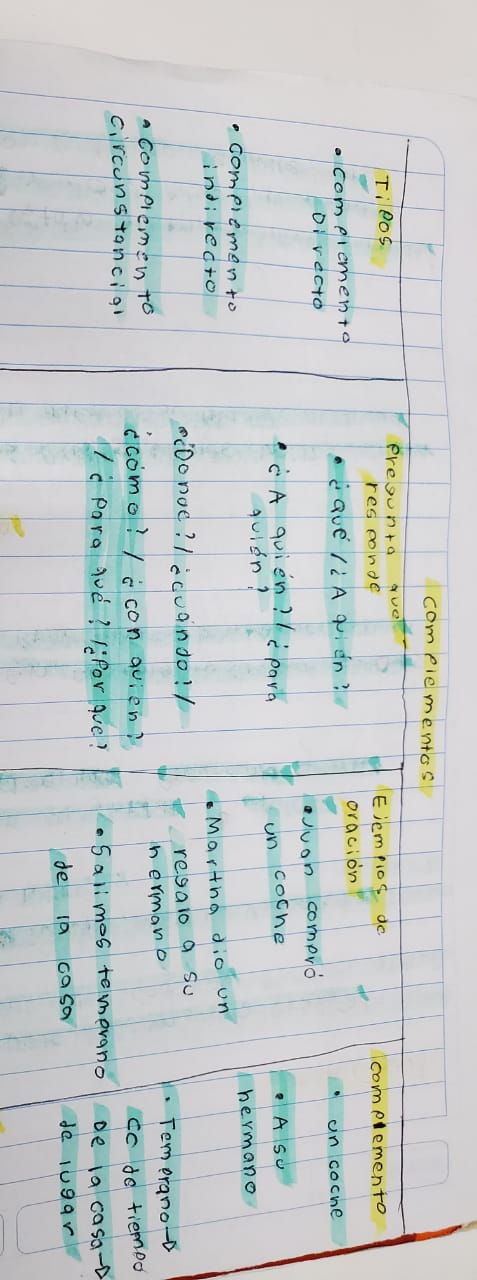 Complementos
Tipos
• Complemento
Directo
• Complemento
indirecto
• Complemento
circunstancial
Pregunta que
responde
• ¿qué / ¿A quién?
• ¿A quién? / ¿para
quién?
• ¿Donde? / ¿cuándo? /
¿cómo? / ¿con quién?
/ ¿Para qué? / ¿Por que?
Ejemplos de
oración
• Juan compró
un coche
• Martha dio un
regalo a su
hermano
• Salimos temprano
de la casa
Complemento
• un coche
• A su
hermano
• Temprano →
CC de tiempo
De la casa →
de lugar